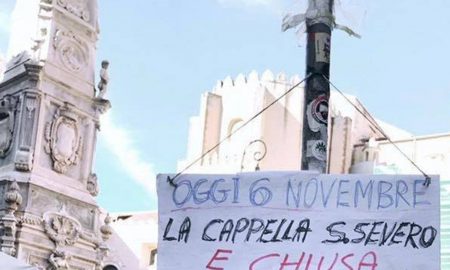 OGGI 6 NOVEMBRE
LA CAPPELLA S.SEVERO
E CHIUSA